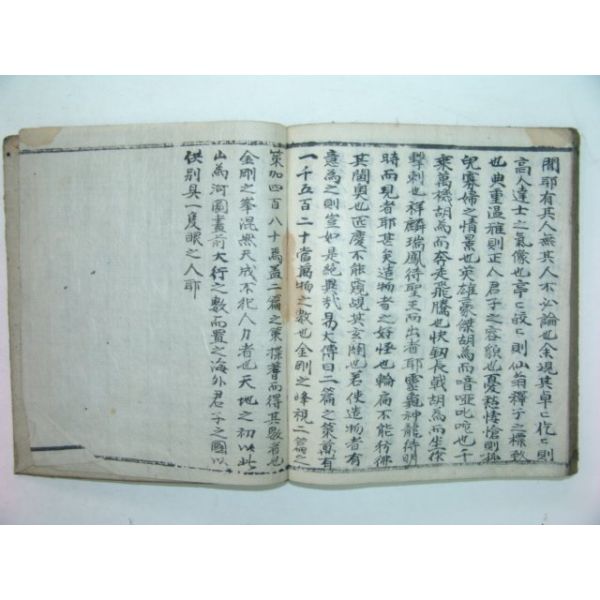 間耶有其人無其人不必論也余現其卓〻仡〻則
高人達士之氣像也亭〻皎〻則仙翁釋子之標致
也典重溫雅則正人君子之容貌也憂愁悽愴則
寡婦之情景也英雄豪傑胡爲而喑啞叱咤也千
乘萬機胡爲而奔走飛騰也快釰長戟胡爲而坐作
擊刺也祥麟瑞鳳待聖王而出者耶靈龜神龍待明
時而見者耶甚矣造物者之好怪也輪扁不能彷彿
其閫奧也匠慶不能窺覘其玄關也若使造物者有
意爲之則豈如是絶異哉易大傳曰二篇之策萬有
一千五百二十當萬物之數也金剛之峰視二篇之
策加四百八十焉盖二篇之策揲蓍而得其數者也
金剛之拳混然天成不犯人力者也天地之初以此
山爲河圖畫前大行之數而置之海外君子之國以
俟別具一隻眼之人耶